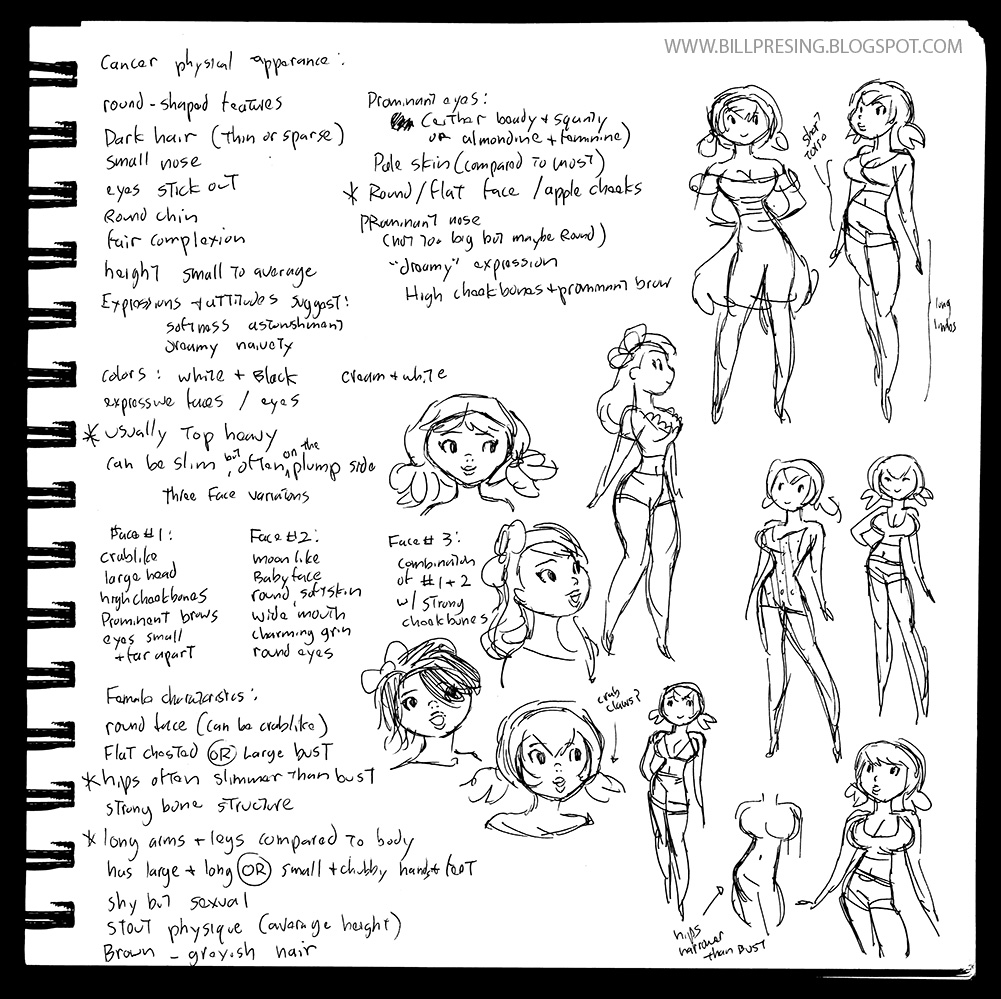 WWW.BILLPRESING.BLOGSPOT.COM
Cancer physical apperance:
round-shaped features
Dark hair (thin or sparse)
small nose
eyes stick out
Round chin
fair complexion
height small to average
Expressions + attitudes suggest:
softness astonishment
dreamy naivety
colors: white + Black cream + white
expressive faces / eyes
* usually Top heavy
can be slim but often on the plump side
three Face variations
Prominant eyes:
(either beady + squinty
or almondine + feminine)
Pale skin (compared to most)
* Round/flat face / apple cheeks
PRominant nose
(not too big but maybe Round)
"dreamy" expression
High cheekbones + prominant brow
Face #1:
crablike
large head
high cheekbones
Prominent brows
eyes small
+ far apart
Face #2:
moon like
Babyface
round, soft skin
wide mouth
charming grin
round eyes
Face #3:
combination
of #1+2
w/ strong
cheekbones
Female characteristics:
round face (can be crablike)
Flat chested OR Large bust
* hips often slimmer than bust
strong bone structure
* long arms + legs compared to body
has large + long OR small + chubby hands + feet
shy but sexual
stout physique (average height)
Brown - grayish hair
short
torso
long
limbs
crab
claws?
hips
narrower
than BUST